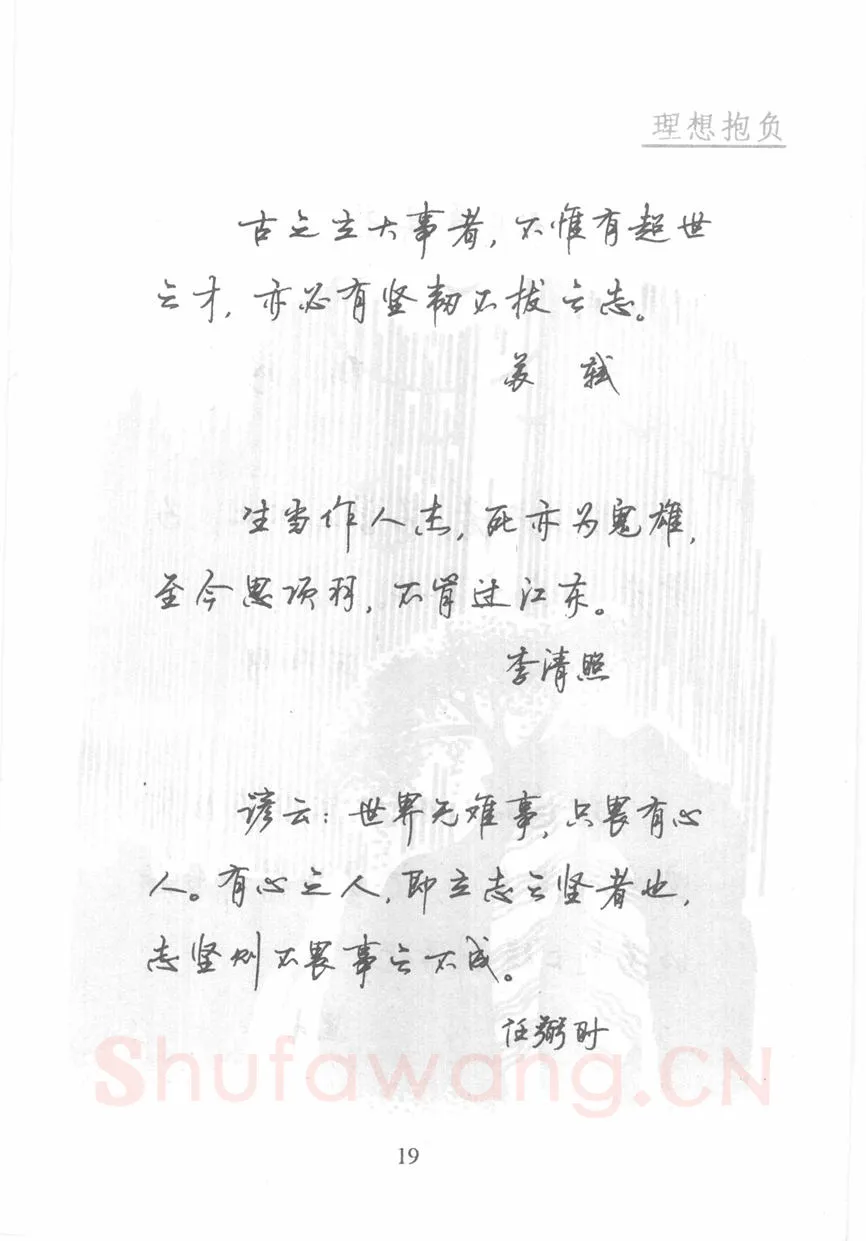 理想抱负
古之立大事者,不惟有超世
之才,亦必有坚韧不拔之志。
苏 轼
生当作人杰,死亦为鬼雄,
至今思项羽,不肯过江东。
李清照
谚云:世界无难事,只畏有心
人。有心之人,即立志之坚者也,
志坚则不畏事之不成。
任弼时
Shufawang.CN
19